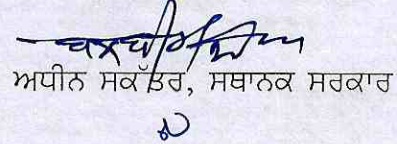 ਅਧੀਨ ਸਕੱਤਰ, ਸਥਾਨਕ ਸਰਕਾਰ